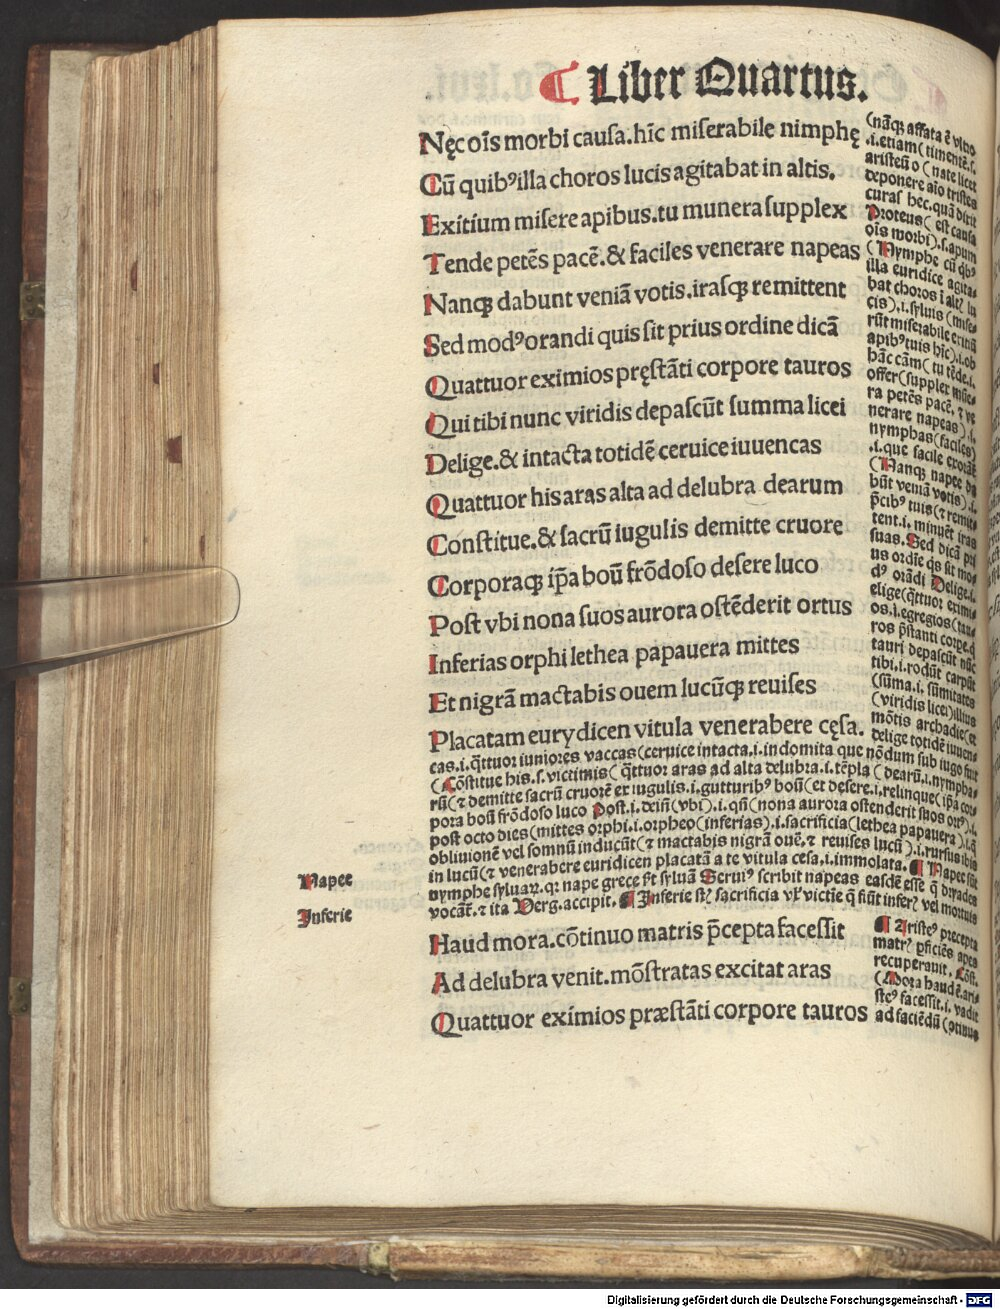 Liber Quartus.
Nęc oīs morbi causa. hīc miserabile nimphę
Cū quibꝰ illa choros lucis agitabat in altis.
Exitium misere apibus. tu munera supplex
Tende petēs pacē. & faciles venerare napeas
Nanqꝫ dabunt veniā votis. irasqꝫ remittent
Sed modꝰ orandi quis sit prius ordine dicā
Quattuor eximios pręstāti corpore tauros
Qui tibi nunc viridis depascūt summa licei
Delige. & intacta totidē ceruice iuuencas
Quattuor his aras alta ad delubra dearum
Constitue. & sacrū iugulis demitte cruore
Corporaqꝫ ip̄a boū frōdoso desere luco
Post vbi nona suos aurora ostēderit ortus
Inferias orphi lethea papauera mittes
Et nigrā mactabis ouem lucūqꝫ reuises
Placatam eurydicen vitula venerabere cęsa.
(nāqꝫ affata ē vltro
.i. etiam (timentē. s.
aristeū o (nate licet
deponere aīo tristes
curas hec. quā dicit
Proteus (est causa
oīs morbi). s. apum
(Nymphe cū qbꝰ
illa euridice agita-
bat choros ī altꝭ lu
cis). i. syluis (mise-
rūt miserabile exitiū
apibꝰ tuis hīc). i. ob
hāc cām (tu tēde. i.
offer (supplex mūe-
ra petēs pacē. ⁊ ve
nerare napeas). i.
nymphas (faciles)
.i. que facile exorāt̄
(Nanqꝫ napee da
būt veniā votis). i.
p̄cibꝰ tuis (⁊ remit-
tent. i. minuēt iras
suas. Sed dicā pri
us ordīe qs sit mo-
dꝰ orādi Delige. i.
elige (q̄ttuor eximi-
os. i. egregios (tau-
ros p̄stanti corpe. q
tauri depascūt nūc
tibi. i. rodūt carpūt
(sūma. i. sūmitates
(viridis licei) illius
mōtis archadie (et
delige totidē iuuen-
cas. i. q̄ttuor iuniores vaccas (ceruice intacta. i. indomita que nōdum sub iugo fuit
(Cōstitue his. s. victimis (q̄ttuor aras ad alta delubra. i. tēpla (dearū. i. nympha-
rū (⁊ demitte sacrū cruorē ex iugulis. i. gutturibꝰ boū (et desere. i. relinque (ip̄a cor-
pora boū frōdoso luco Post. i. deīn (vbi). i. qn̄ (nona aurora ostenderit suos ortꝰ). i.
post octo dies (mittes orphi. i. orpheo (inferias). i. sacrificia (lethea papauera). i. q̄
obliuionē vel somnū inducūt (⁊ mactabis nigrā ouē. ⁊ reuises lucū). i. rursus ibis
in lucū (⁊ venerabere euridicen placatā a te vitula cesa. i. immolata. ¶ Napee sūt
nymphe syluaꝝ. q: nape grece est syluā Seruiꝰ scribit napeas easdē esse q̄ dryades
vocāt. ⁊ ita Verg. accipit. ¶ Inferie st̄ sacrificia vl̓ victīe q̄ fiūt inferꝭ vel mortuis
Napee
Inferie
Haud mora. cōtinuo matris p̄cepta facessit
Ad delubra venit. mōstratas excitat aras
Quattuor eximios præstāti corpore tauros
¶ Aristeꝰ precepta
matrꝭ ꝑficiēs apes
recuperauit. Cōst.
(Mora haud ē. ari-
steꝰ facessit. i. vadit
ad faciēdū (ↄtinuo
Digitalisierung gefördert durch die Deutsche Forschungsgemeinschaft - DFG